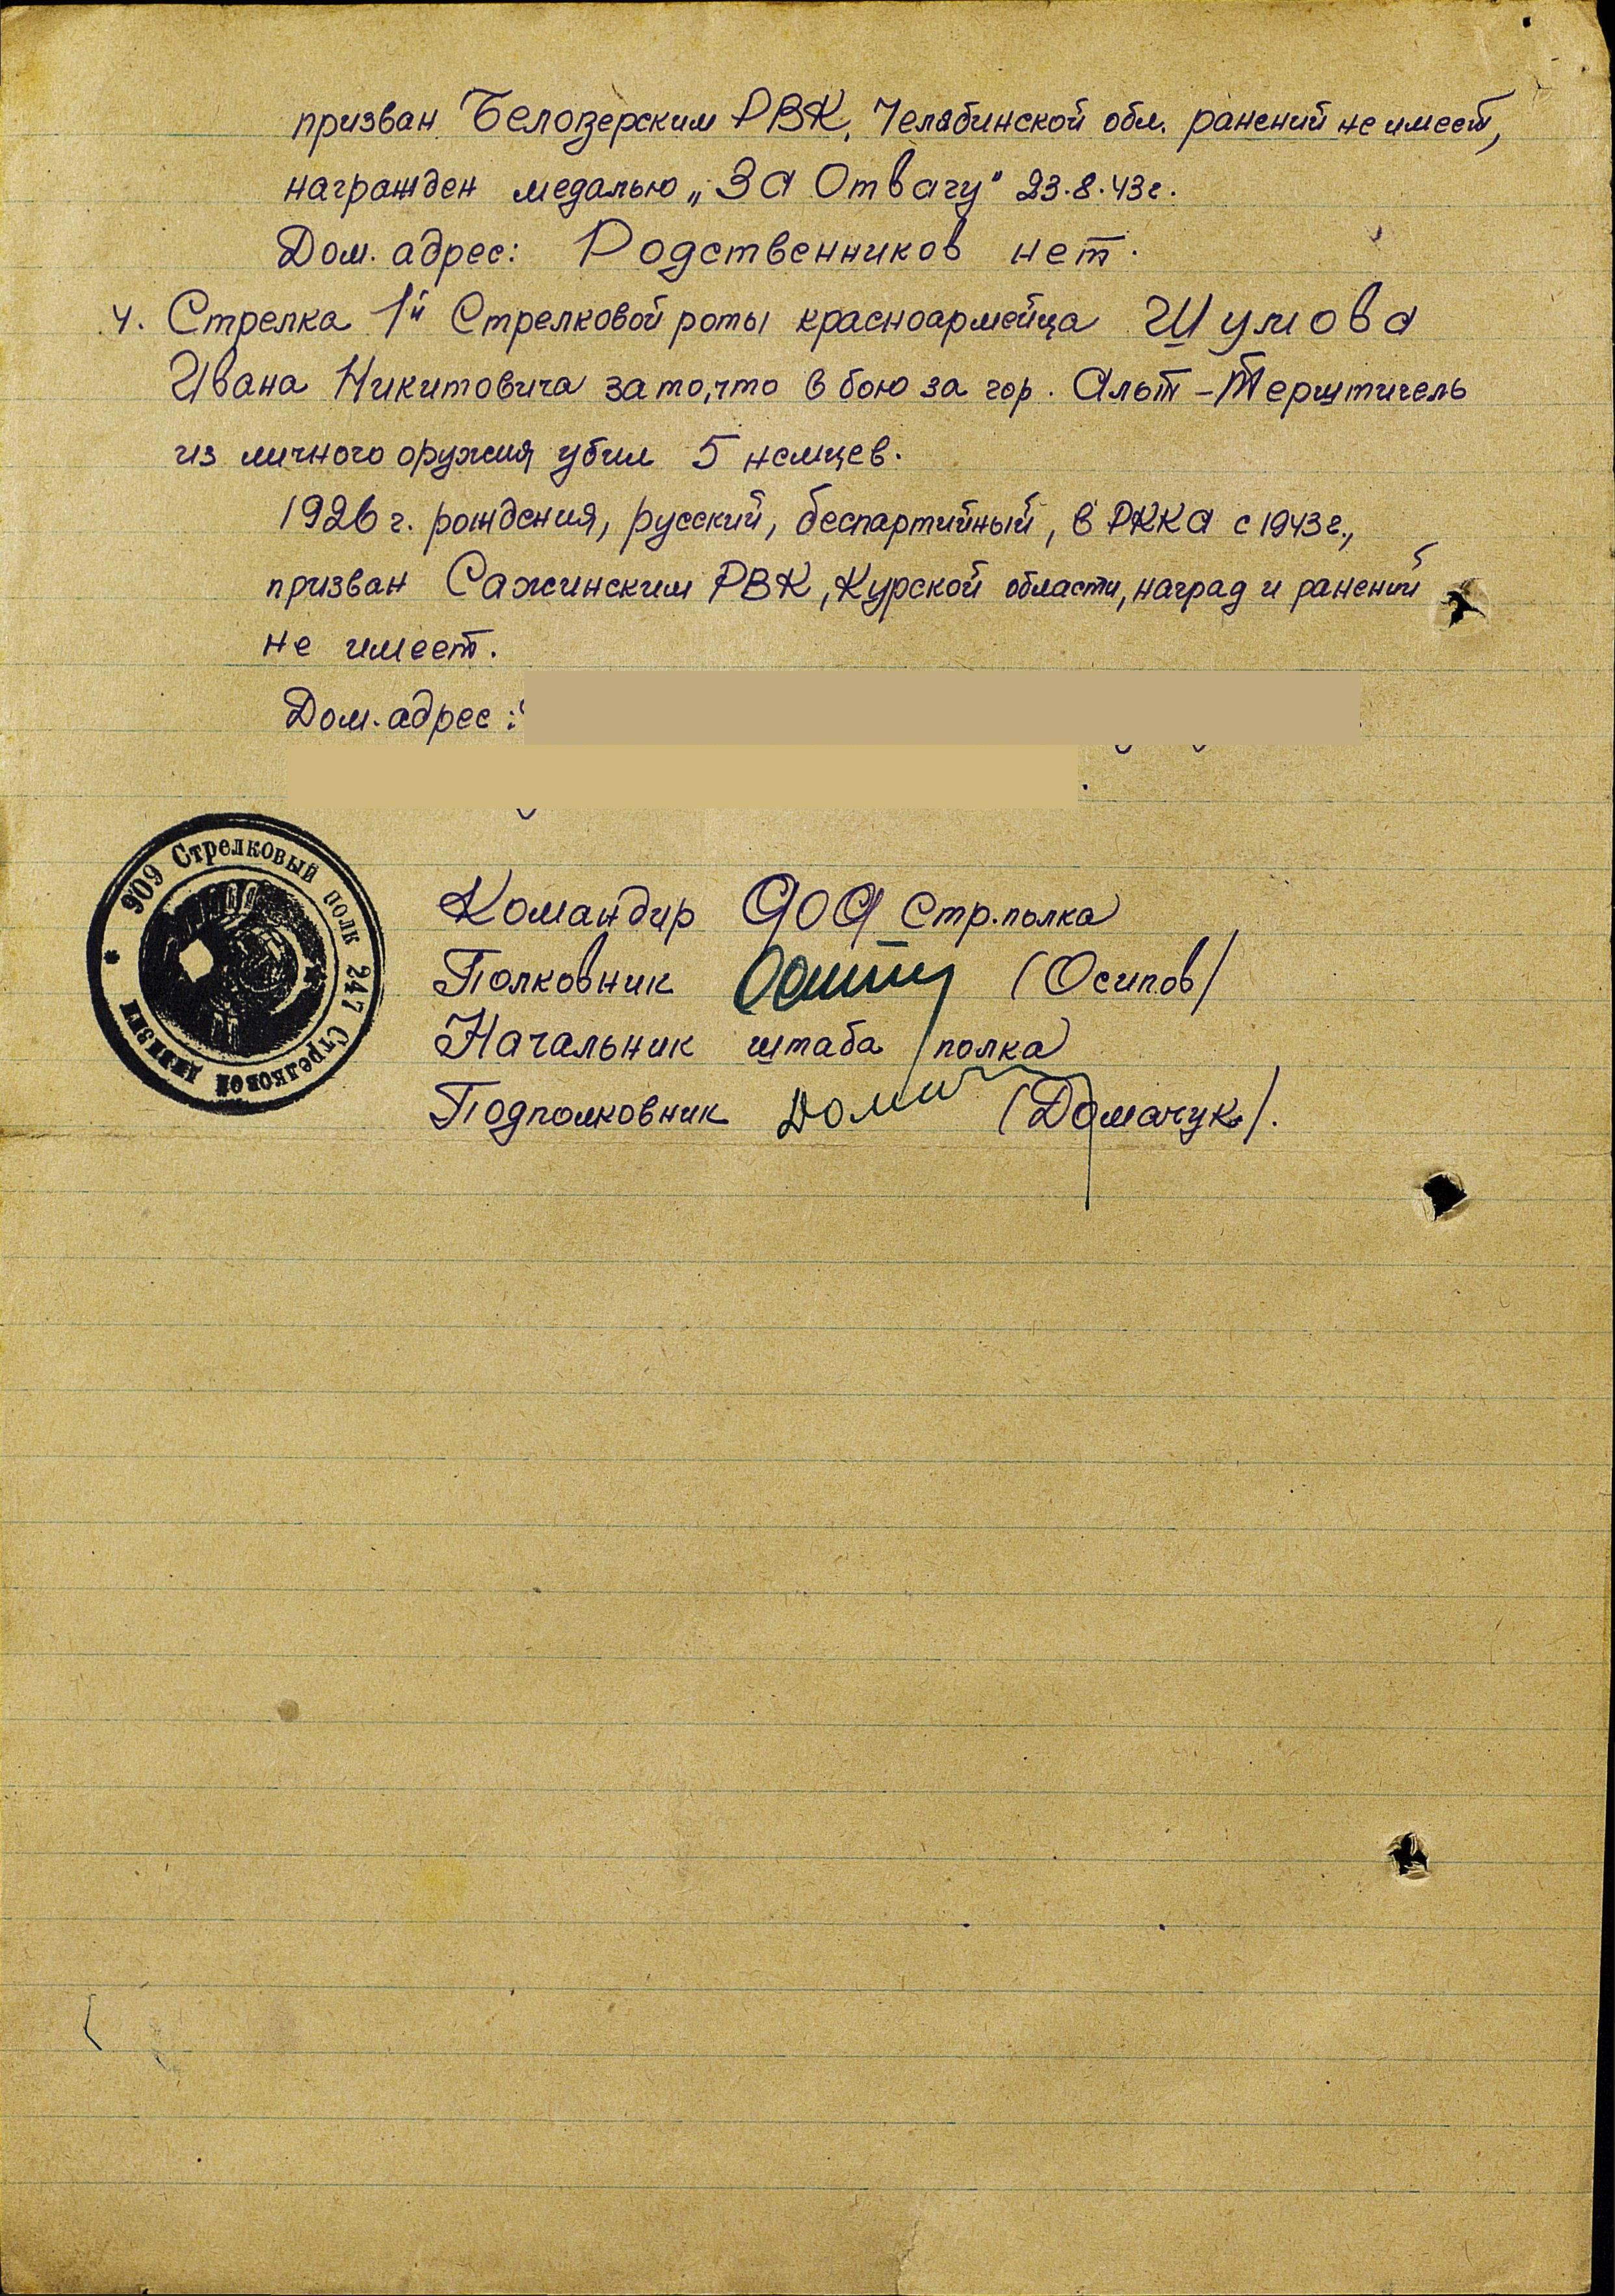 призван Белозерским РВК, Челябинской обл. ранений не имеет,
награжден медалью „За Отвагу" 23.8.43г.
Дом. адрес: Родственников нет.
4. Стрелка 1й Стрелковой роты красноармейца Шумова
Ивана Никитовича за то, что в бою за гор. Альт-Терштигель
из личного оружия убил 5 немцев.
1926 г. рождения, русский, беспартийный, в РККА с 1943г.,
призван Сажинским РВК, Курской области, наград и ранений
не имеет.
Дом. адрес:
909 Стрелковый полк 247 Стрелковой дивизии *
Командир 909 стр. полка
Полковник (Осипов)
Начальник штаба полка
Подполковник (Домачук).